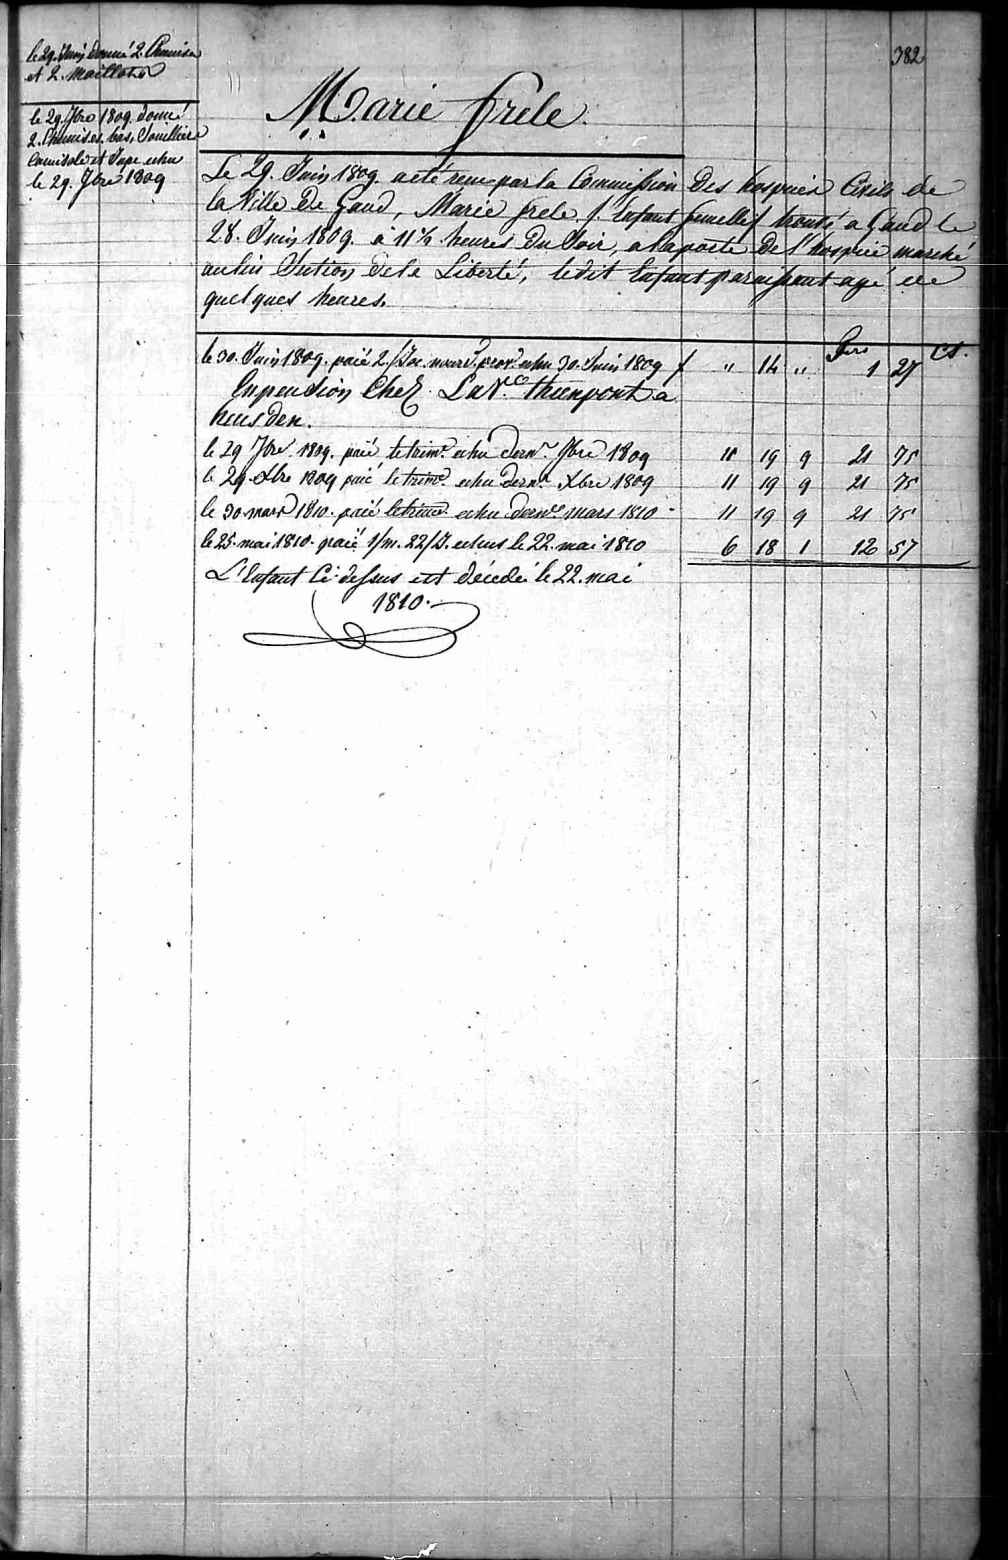 382
le 29. Juin donné 2. Chemises
et 2. Maillots
le 29. 7bre 1809. donné
2. Chemises, bas, Souilliers
Camisole et Jupe echu
le 29. 7bre 1809
Marie frele.
Le 29. Juin 1809. a eté recu par la Commission Des hospices Civils de
la Ville De Gand, Marie frele /. Enfant femelle / trouvé a Gand le
28. Juin 1809. à 11 ½ heures du Soir, a la porte De l'hospice marché
au lin Section de la Liberté, ledit Enfant paraissant agé de
quelques heures.
frs Cs.
le 30. Juin 1809. paié 2./Jrs. nourd. prov. echu 30. Juin 1809 f " 14 " 1 27
En pension Chez La Ve. thienpont a
heusden.
le 29 7bre 1809. paié le trimr. echu dernr. 7bre 1809 11 19 9 21 75
le 29 Xbre 1809 paié le trimr. echu dernr. Xbre 1809 11 19 9 21 75
le 30 mars 1810. paié le trimr. echu dernr. mars 1810 - 11 19 9 21 75
le 25. mai 1810. paié 1/m. 22/J. echus le 22. mai 1810 6 18 1 12 57
L'Enfant Ci-dessus est décedé le 22. mai
1810.